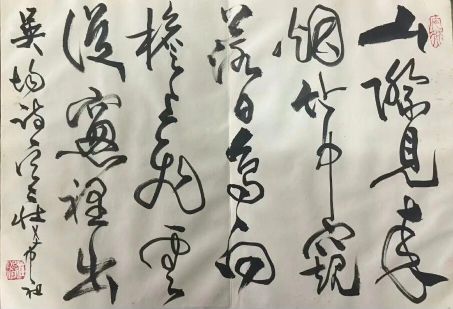 山際見來
烟竹中窺
落日鳥向
檐上飛雲
從窻裡出
吳均詩